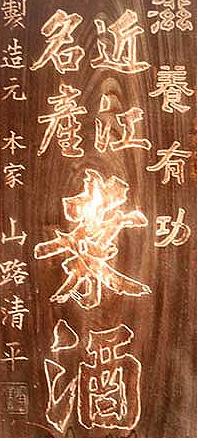 滋養有功
近江
名產
桒酒
製造元 本家 山路清平